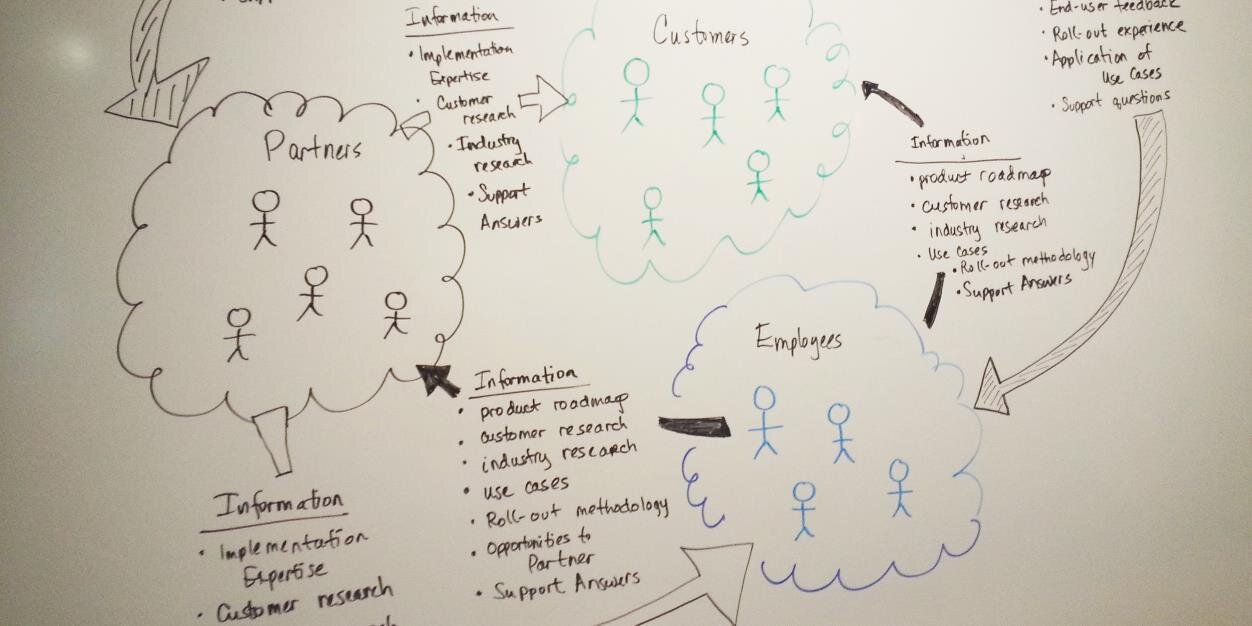 Information
• Implementation
Expertise
• Customer
research
• Industry
research
• Support
Answers
Customers
• End-user feedback
• Roll-out experience
• Application of
Use Cases
• Support questions
Partners
Information
• product roadmap
• customer research
• industry research
• Use Cases
• Roll-out methodology
• Support Answers
Employees
Information
• product roadmap
• customer research
• industry research
• use cases
• Roll-out methodology
• Opportunities to
Partner
• Support Answers
Information
• Implementation
Expertise
• Customer research